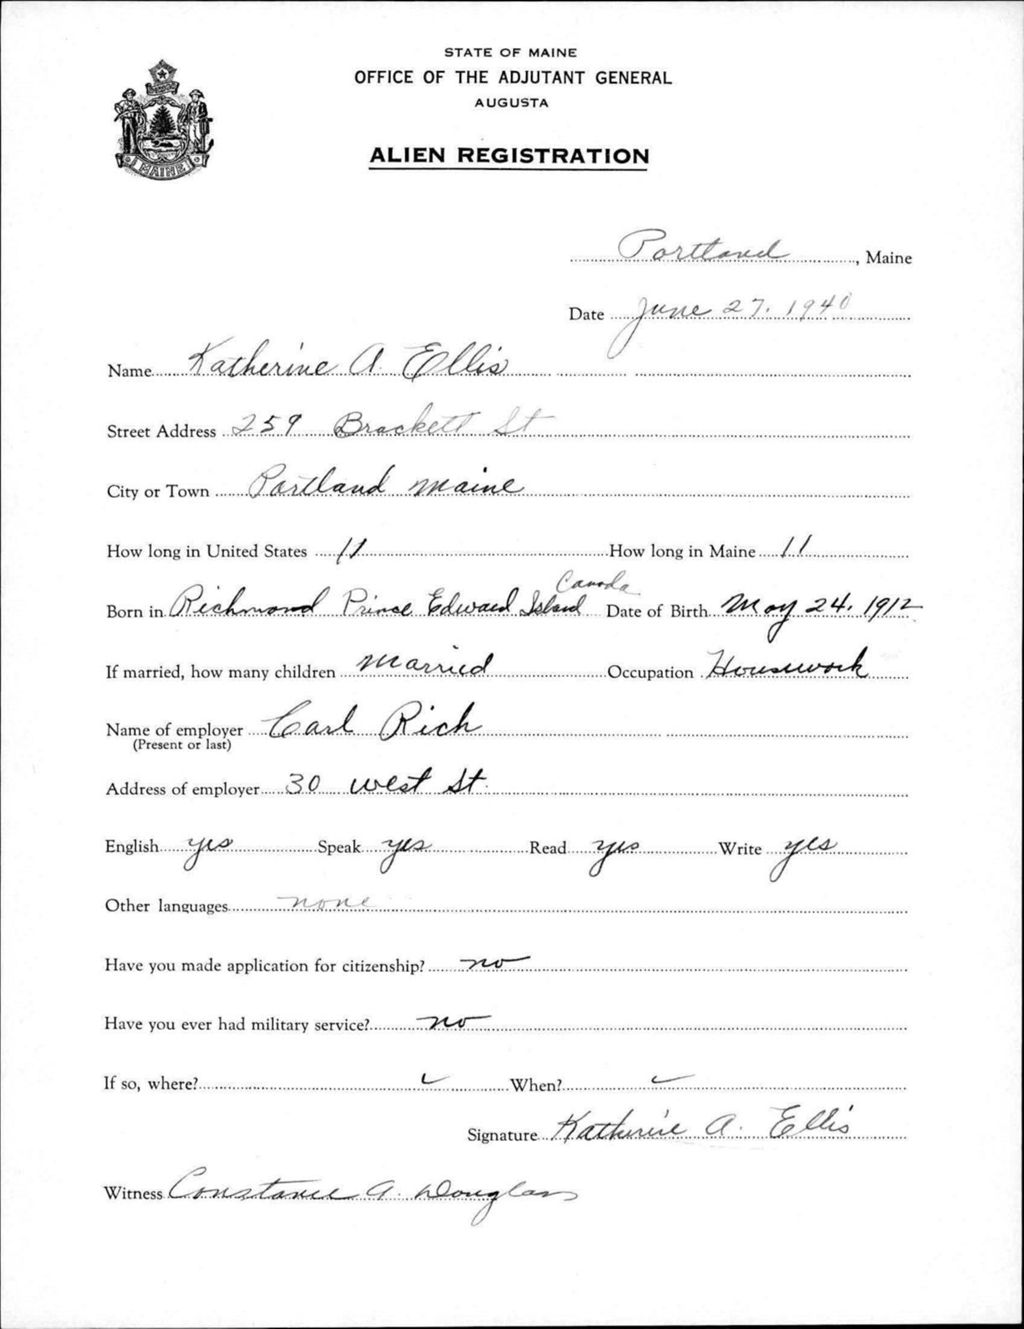 STATE OF MAINE
OFFICE OF THE ADJUTANT GENERAL
AUGUSTA
ALIEN REGISTRATION
MAINE
Portland, Maine
Date June 27. 1940
Name Katherine A. Ellis
Street Address 259 Brackett St
City or Town Portland Maine
How long in United States 11 How long in Maine 11
Canada
Born in Richmond Prince Edward Island Date of Birth May 24. 1912
If married, how many children Married Occupation Housework
Name of employer Carl Rich
(Present or last)
Address of employer 30 West St.
English yes Speak yes Read yes Write yes
Other languages none
Have you made application for citizenship? no
Have you ever had military service? no
If so, where? When?
Signature Katherine A. Ellis
Witness Constance A. Douglass